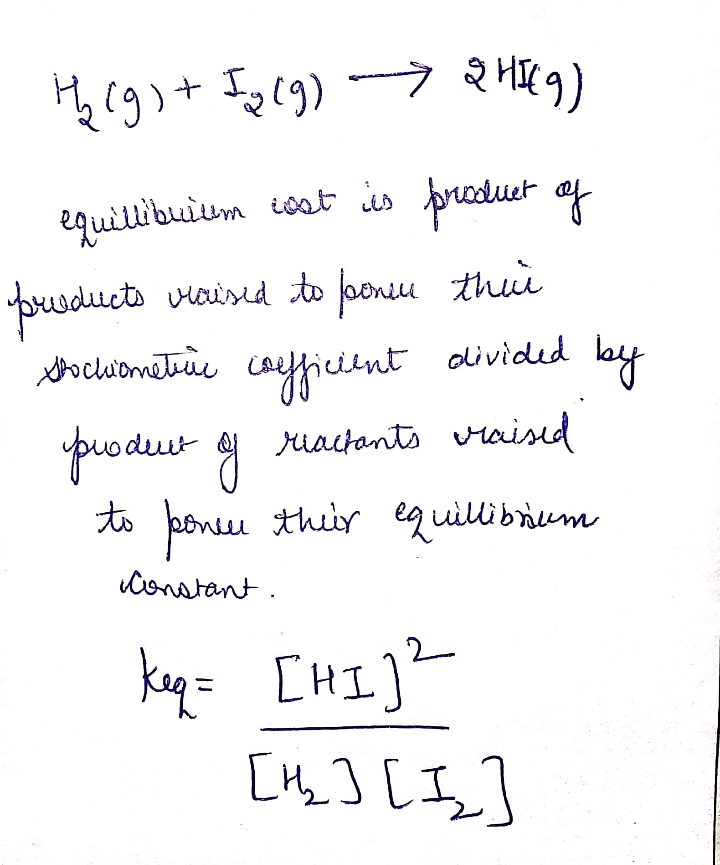 H₂(g) + I₂(g) ⟶ 2HI(g)
equillibrium cost is product of
products raised to power their
stochiometric coefficient divided by
product of reactants raised
to power their equillibrium
constant.
keq = [HI]²
[H₂] [I₂]